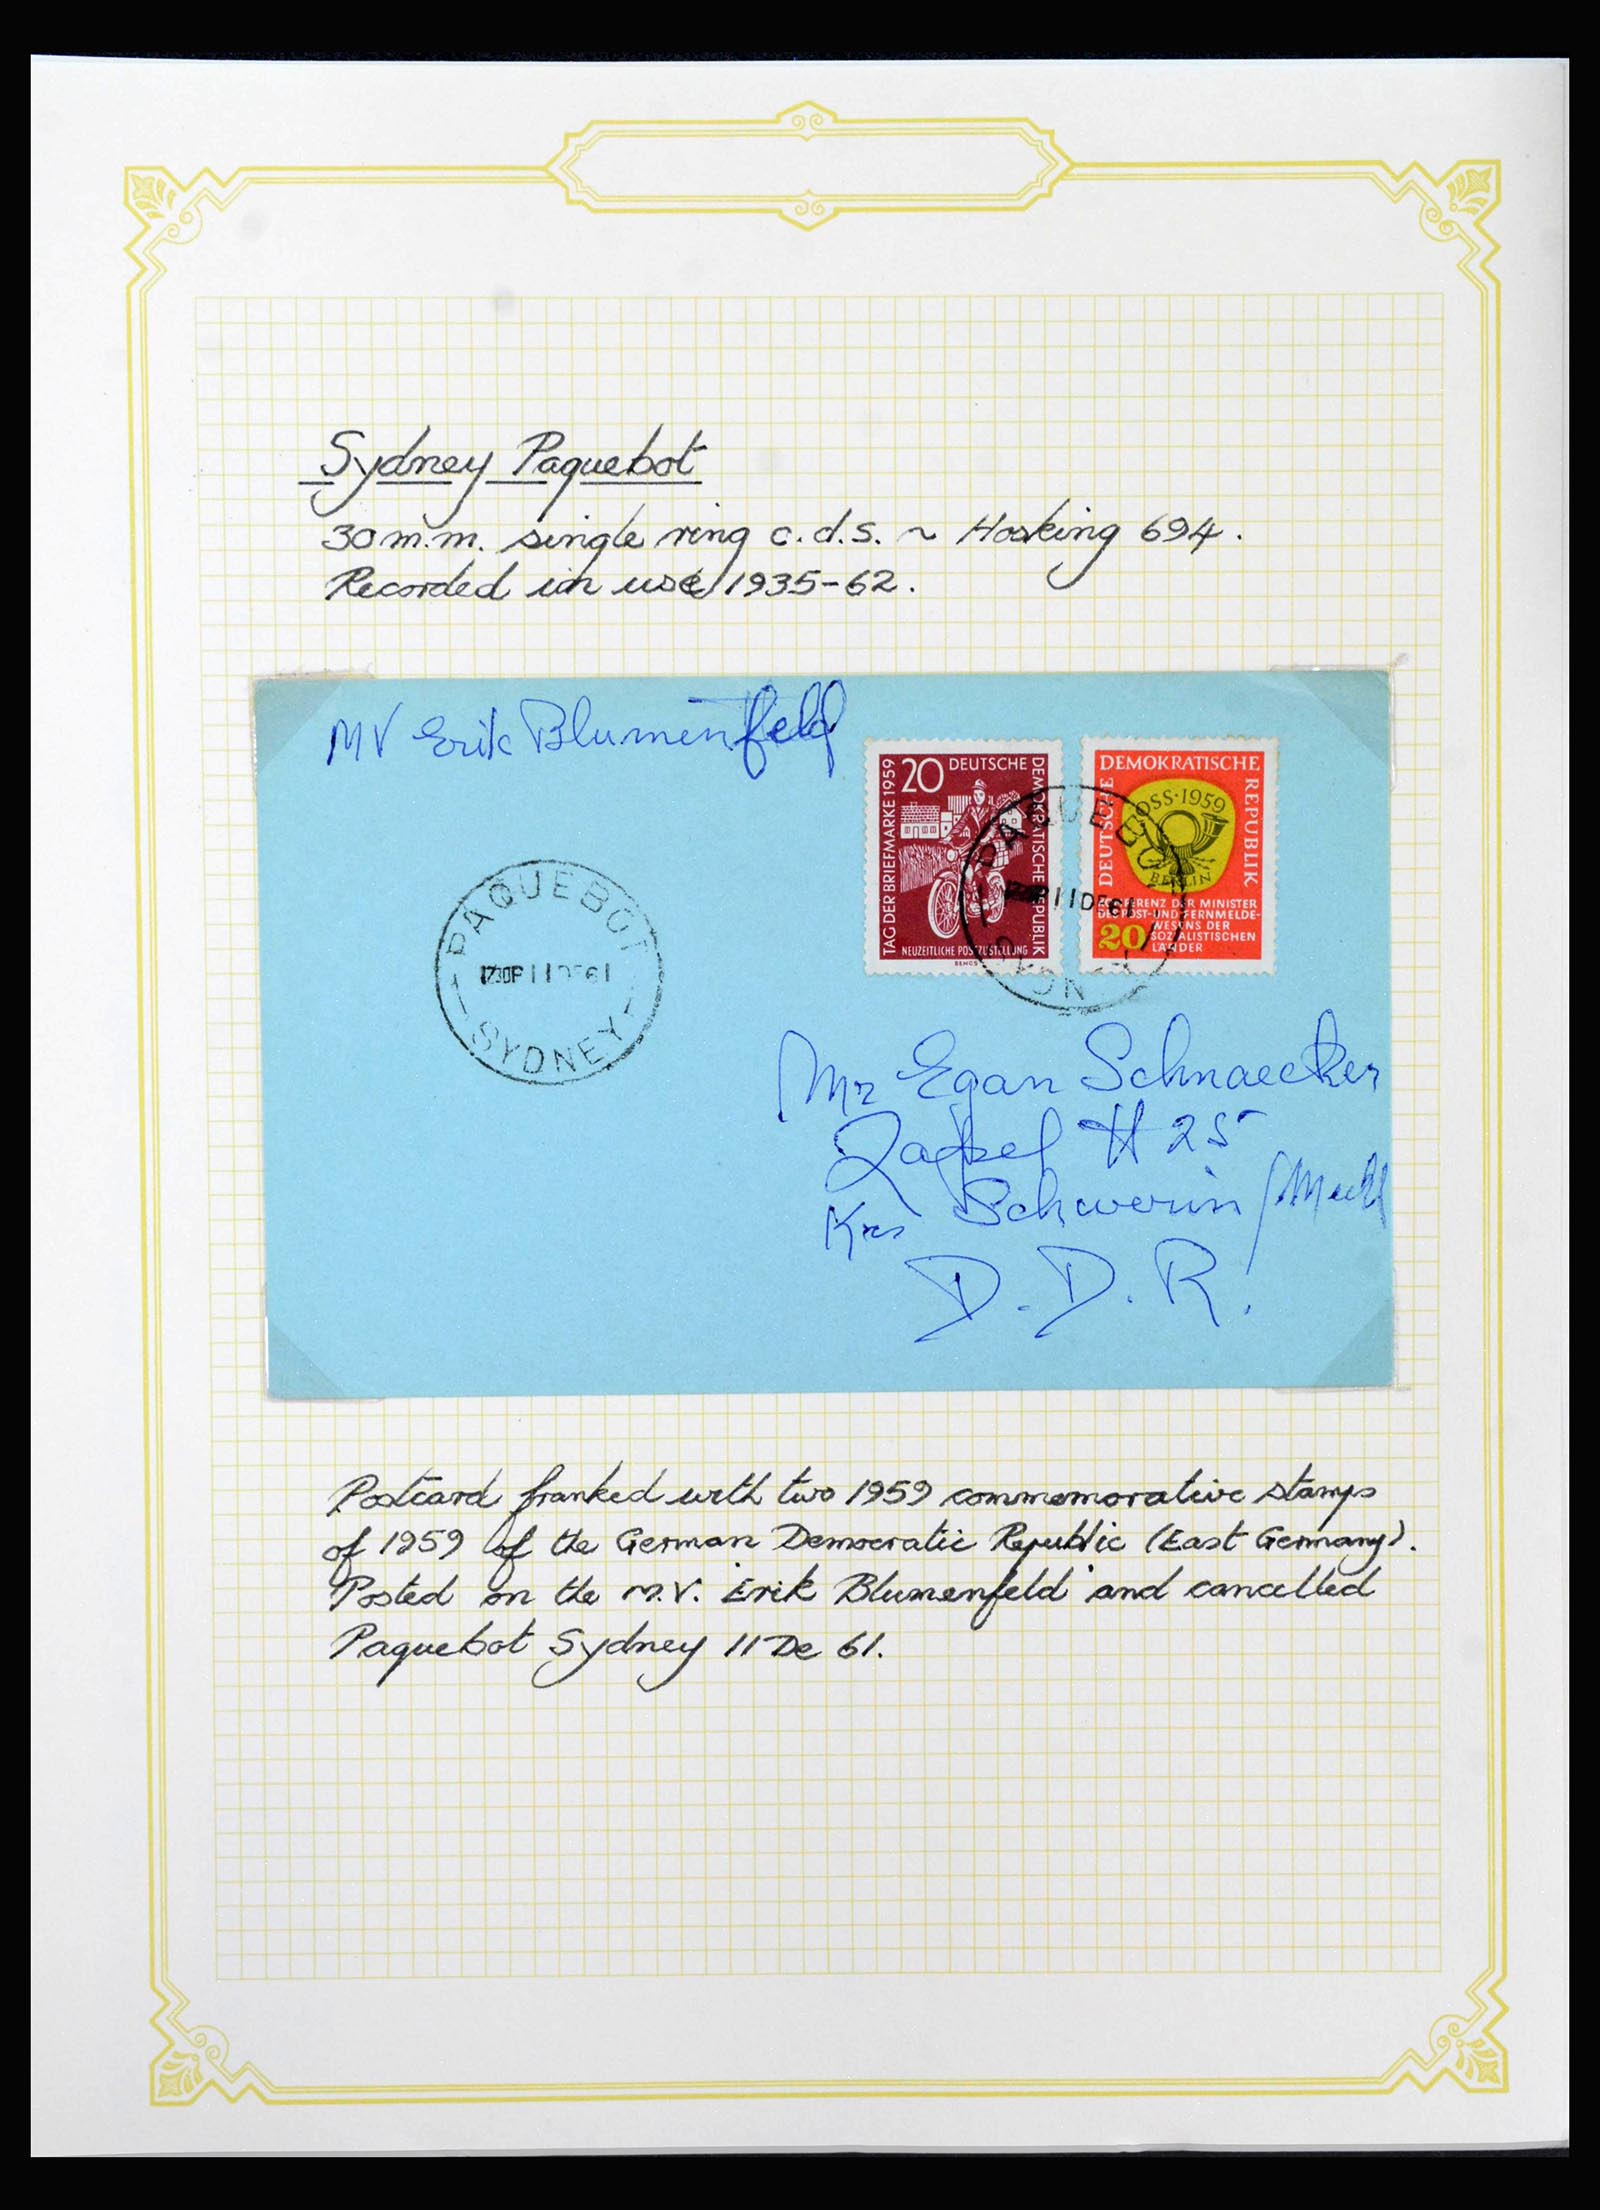 Sydney Paquebot
30 m.m. single ring c.d.s. ~ Hosking 694.
Recorded in use 1935-62.
MV Erik Blumenfeld
TAG DER BRIEFMARKE 1959
20 DEUTSCHE
DEMOKRATISCHE REPUBLIK
NEUZEITLICHE POSTZUSTELLUNG
DEUTSCHE
DEMOKRATISCHE
REPUBLIK
OSS·1959
BERLIN
KONFERENZ DER MINISTER
DES POST- UND FERNMELDE-
WESENS DER
20 SOZIALISTISCHEN
LÄNDER
PAQUEBOT
1230P 11 DE 61
SYDNEY
PAQUEBOT
11 DE 61
SYDNEY
Mr Egan Schnaecker
H 25
Krs Schwerin / Meckl
D.D.R.
Postcard franked with two 1959 commemorative stamps
of 1959 of the German Democratic Republic (East Germany).
Posted on the M.V. 'Erik Blumenfeld' and cancelled
Paquebot Sydney 11 De 61.